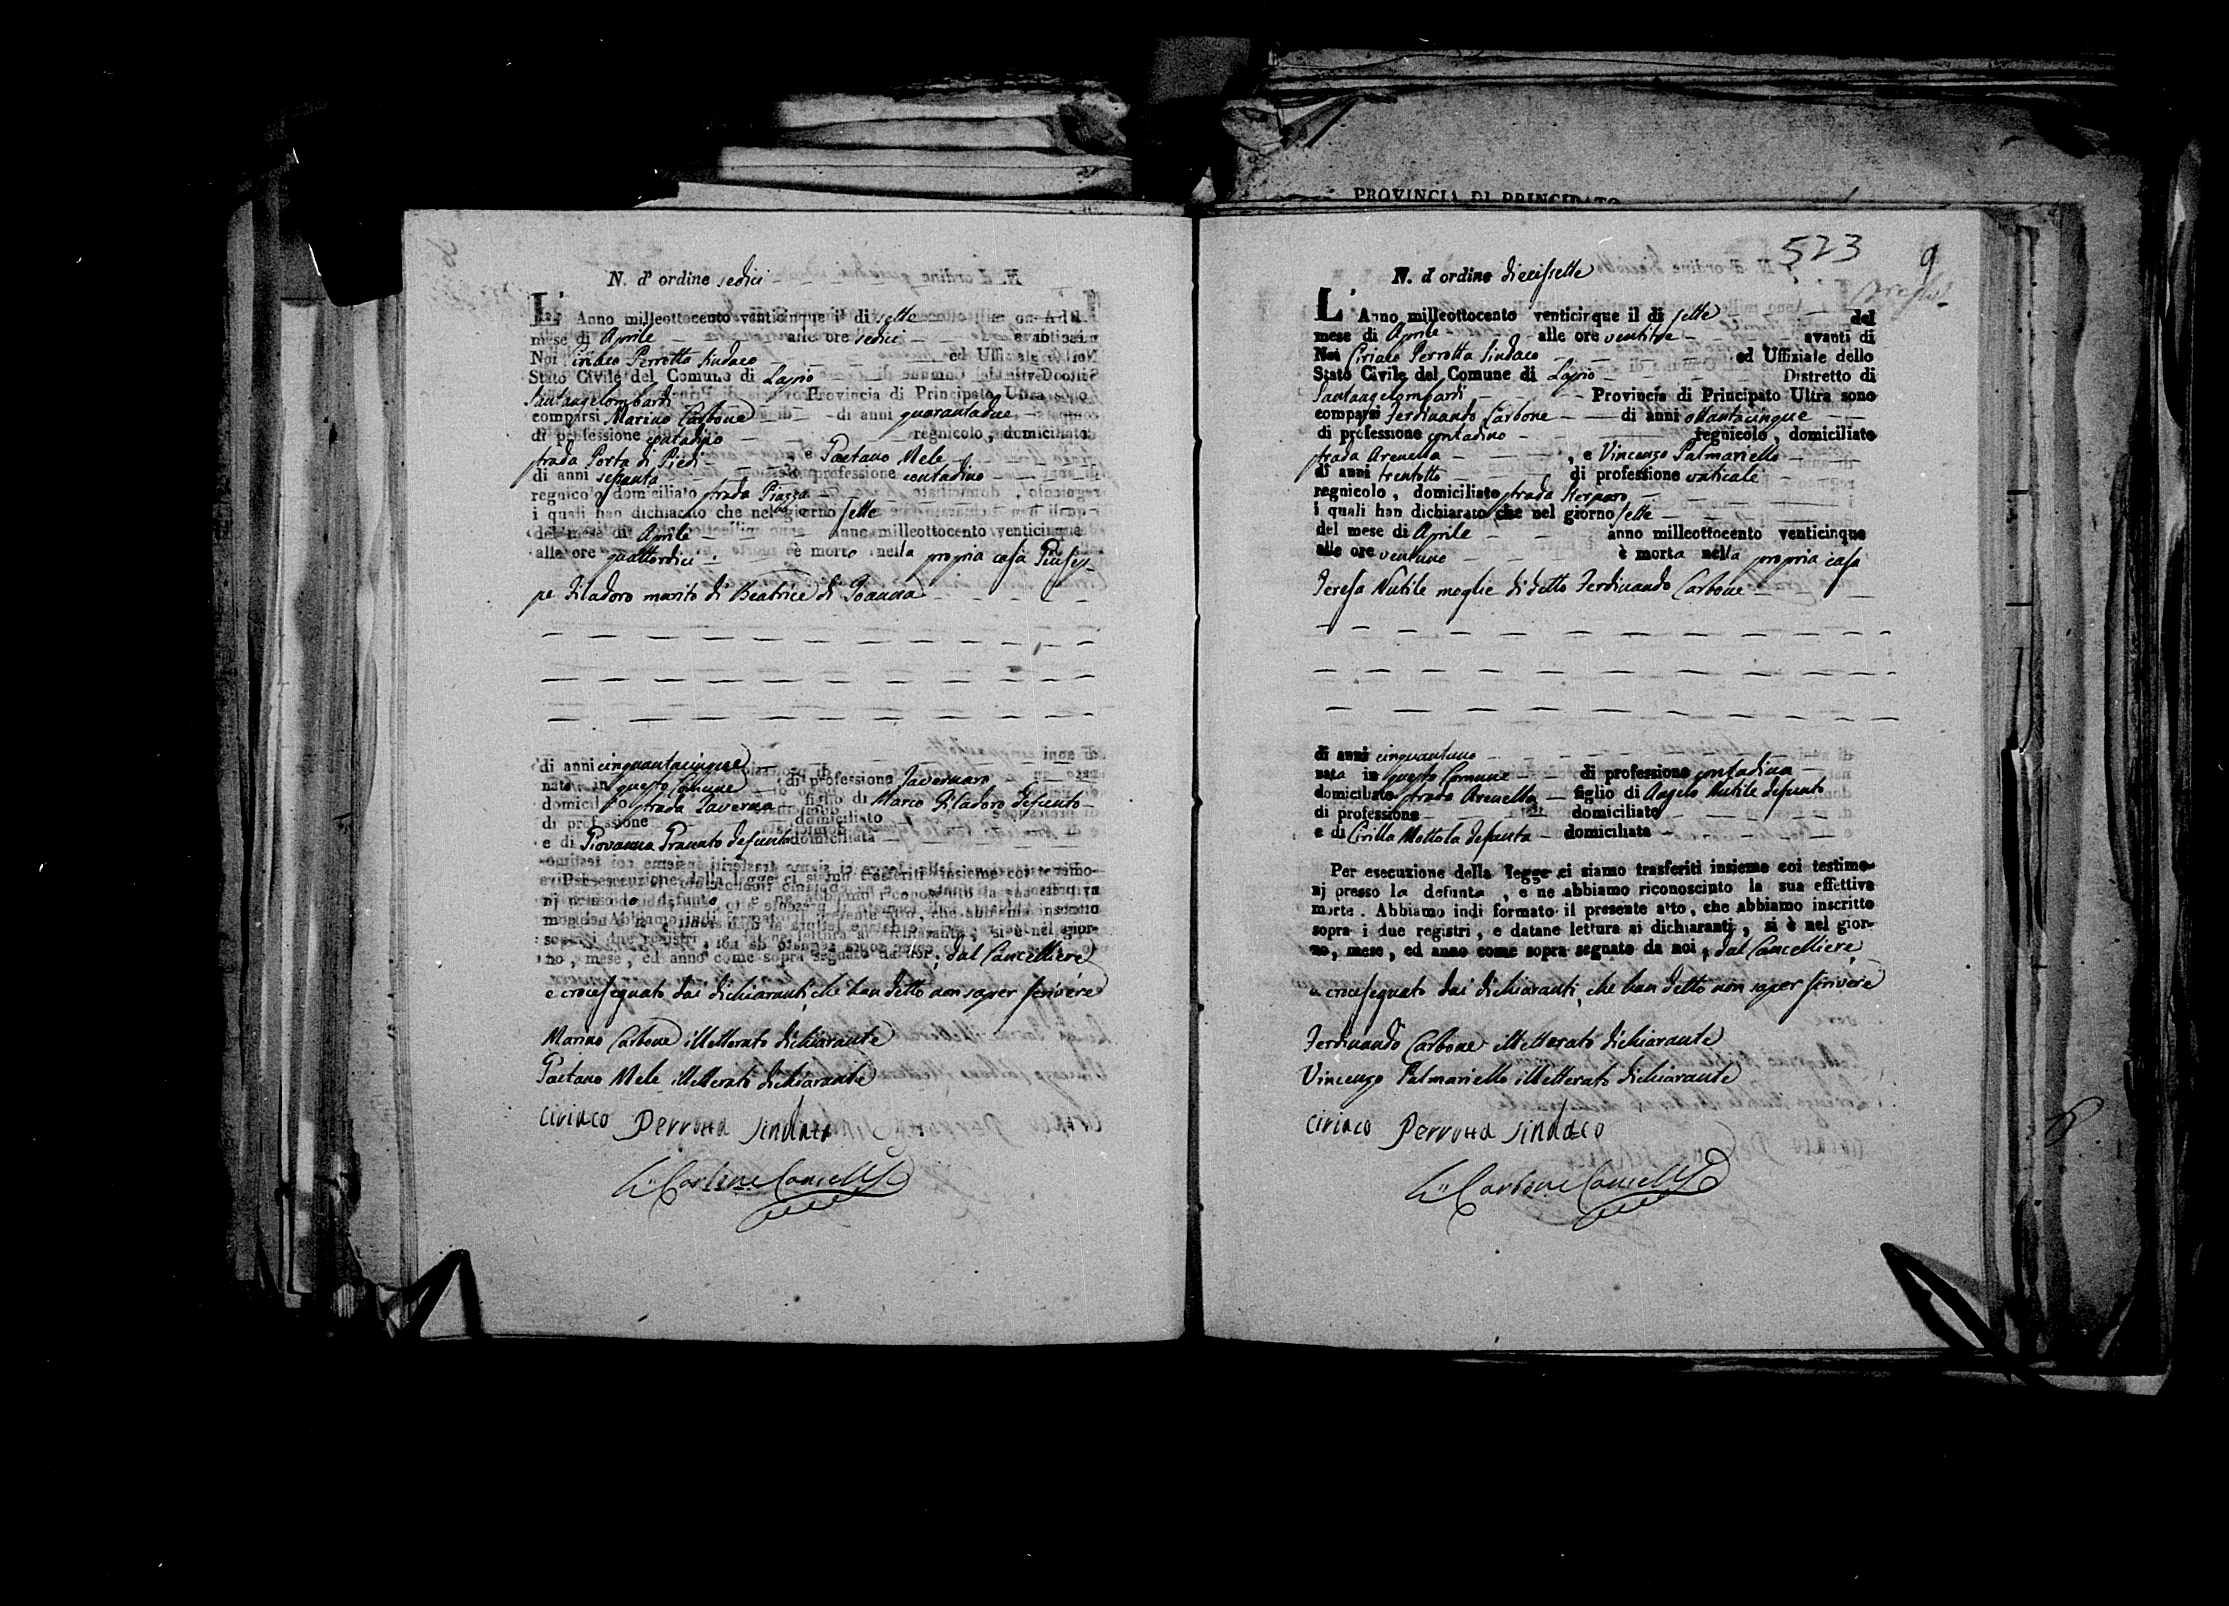 PROVINCIA DI PRINCIPATO
N. d'ordine sedici
L'Anno milleottocento venticinque il di sette
mese di Aprile alle ore sedici
Noi Ciriaco Perrotta Sindaco ed Uffiziale
Stato Civile del Comune di Lapio
Santangelombardi Provincia di Principato Ultra sono
comparsi Marino Carbone di anni quarantadue
di professione contadino regnicolo, domiciliato
strada Porta di Piedi , e Gaetano Mele
di anni settanta di professione contadino
regnicolo domiciliato strada Piazza
i quali han dichiarato che nel giorno sette
del mese di Aprile anno milleottocento venticinque
alle ore quattordici è morto nella propria casa Giusep-
pe Filadoro marito di Beatrice di Joanna
di anni cinquantacinque
nato in questo Comune di professione Tavernaro
domicil to strada Taverna figlio di Marco Filadoro defunto
di professione domiciliato
e di Giovanna Granato defunta domiciliata
Per esecuzione della legge ci siamo trasferiti insieme coi testimo-
nj presso lo defunto, e ne abbiamo riconosciuto la sua effettiva
morte. Abbiamo indi formato il presente atto, che abbiamo inscritto
sopra i due registri, e datane lettura ai dichiaranti, si è nel gior-
no, mese, ed anno come sopra segnato da noi, dal Cancelliere
e crocesegnato dai dichiaranti, che han detto non saper scrivere
Marino Carbone illetterato dichiarante
Gaetano Mele illetterato dichiarante
Ciriaco Perrotta Sindaco
Carbone Cancell
523 9
N. d'ordine diecissette
L'Anno milleottocento venticinque il di sette del
mese di Aprile alle ore ventitre avanti di
Noi Ciriaco Perrotta Sindaco ed Uffiziale dello
Stato Civile del Comune di Lapio Distretto di
Santangelombardi Provincia di Principato Ultra sono
comparsi Ferdinando Carbone di anni ottantacinque
di professione contadino regnicolo, domiciliato
strada Arenella , e Vincenzo Palmariello
di anni trentotto di professione vaticale
regnicolo, domiciliato strada
i quali han dichiarato che nel giorno sette
del mese di Aprile anno milleottocento venticinque
alle ore ventuno è morta nella propria casa
Teresa Nutile moglie di detto Ferdinando Carbone
di anni cinquantuno
nata in questo Comune di professione contadina
domiciliata strada Arenella figlio di Angelo Nutile defunto
di professione domiciliato
e di Cirilla Mottola defunta domiciliata
Per esecuzione della legge ci siamo trasferiti insieme coi testimo-
nj presso la defunta, e ne abbiamo riconosciuto la sua effettiva
morte. Abbiamo indi formato il presente atto, che abbiamo inscritto
sopra i due registri, e datane lettura ai dichiaranti, si è nel gior-
no, mese, ed anno come sopra segnato da noi, dal Cancelliere,
e crocesegnato dai dichiaranti, che han detto non saper scrivere
Ferdinando Carbone illetterato dichiarante
Vincenzo Palmariello illetterato dichiarante
Ciriaco Perrotta Sindaco
Carbone Cancell